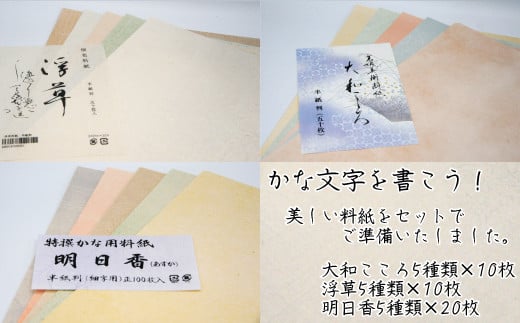 浮草
半紙判 五十枚
大和こころ
半紙判(五十枚)
特撰かな用料紙
明日香(あすか)
半紙判(細字用)正100枚入
かな文字を書こう!
美しい料紙をセットで
ご準備いたしました。
大和こころ5種類×10枚
浮草5種類×10枚
明日香5種類×20枚